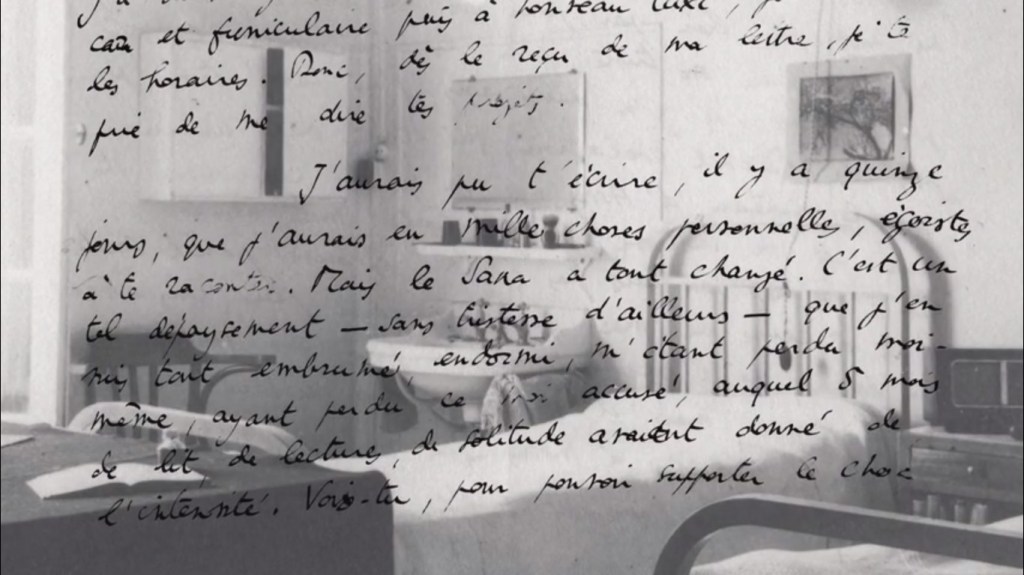 car et funiculaire puis à nouveau taxi, je
les horaires. Donc, dès le reçu de ma lettre, je te
prie de me dire tes projets.
J'aurais pu t'écrire, il y a quinze
jours, que j'aurais eu mille choses personnelles, égoïstes
à te raconter. Mais le Sana a tout changé. C'est un
tel dépaysement — sans tristesse d'ailleurs — que j'en
suis tout embrumé, endormi, m'étant perdu moi-
même, ayant perdu ce moi accusé, auquel 5 mois
de lit, de lectures, de solitude avaient donné de
l'intensité. Vois-tu, pour pouvoir supporter le choc